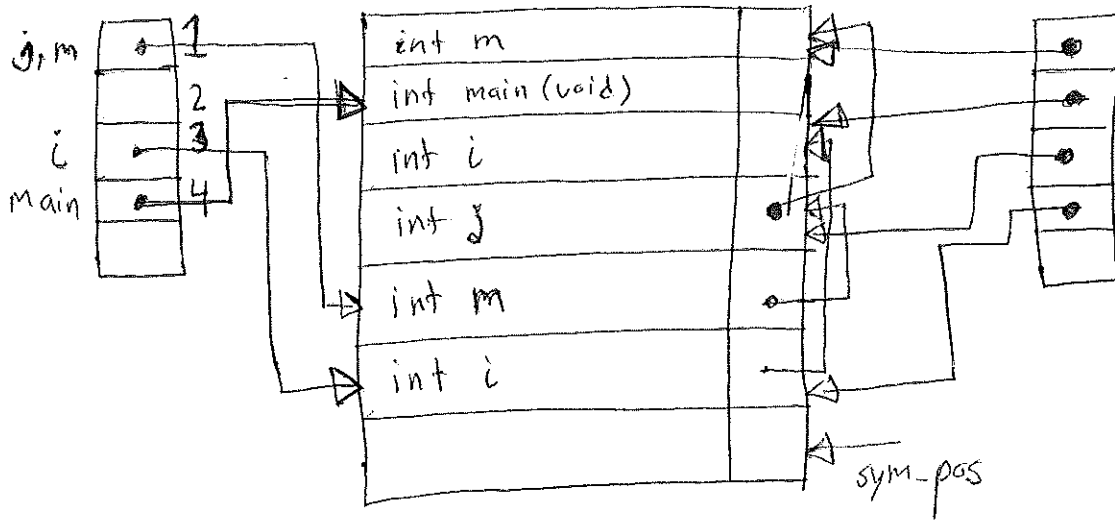 j, m 1
2
i 3
main 4
int m
int main (void)
int i
int j
int m
int i
sym-pos